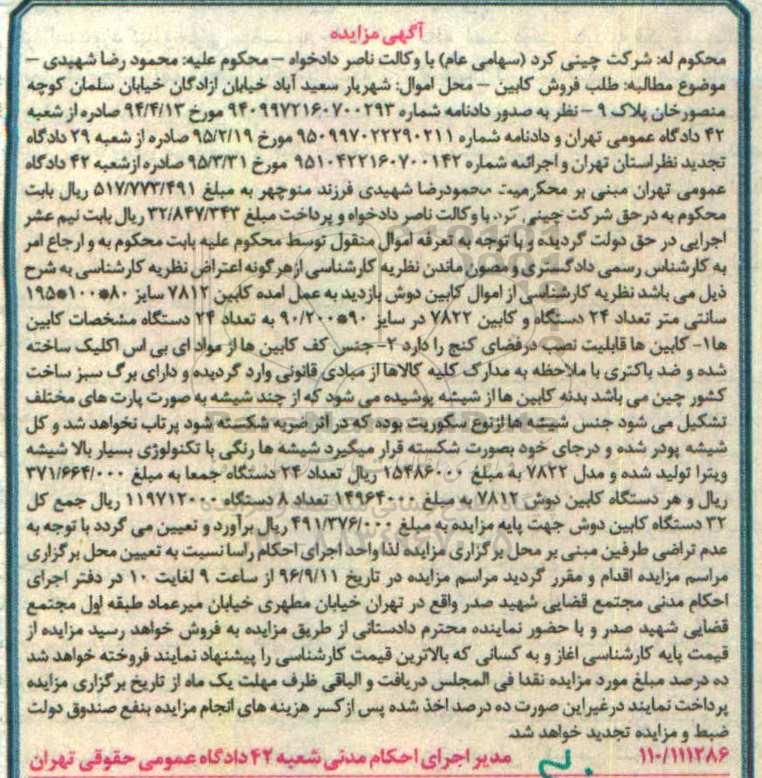 آگهی مزایده
محکوم له: شرکت چینی کرد (سهامی عام) با وکالت ناصر دادخواه – محکوم علیه: محمود رضا شهیدی –
موضوع مطالبه: طلب فروش کابین – محل اموال: شهریار سعید آباد خیابان ازادگان خیابان سلمان کوچه
منصورخان پلاک ۹ – نظر به صدور دادنامه شماره ۹۴۰۹۹۷۲۱۶۰۷۰۰۲۹۳ مورخ ۹۴/۴/۱۳ صادره از شعبه
۴۲ دادگاه عمومی تهران و دادنامه شماره ۹۵۰۹۹۷۰۲۲۲۹۰۲۱۱ مورخ ۹۵/۲/۱۹ صادره از شعبه ۲۹ دادگاه
تجدید نظراستان تهران و اجرائیه شماره ۹۵۱۰۴۲۲۱۶۰۷۰۰۱۴۲ مورخ ۹۵/۳/۳۱ صادره ازشعبه ۴۲ دادگاه
عمومی تهران مبنی بر محکومیت محمودرضا شهیدی فرزند منوچهر به مبلغ ۵۱۷/۷۷۳/۴۹۱ ریال بابت
محکوم به درحق شرکت چینی کرد با وکالت ناصر دادخواه و پرداخت مبلغ ۳۲/۸۴۷/۳۴۳ ریال بابت نیم عشر
اجرایی در حق دولت گردیده و با توجه به تعرفه اموال منقول توسط محکوم علیه بابت محکوم به و ارجاع امر
به کارشناس رسمی دادگستری و مصون ماندن نظریه کارشناسی ازهرگونه اعتراض نظریه کارشناسی به شرح
ذیل می باشد نظریه کارشناسی از اموال کابین دوش بازدید به عمل امده کابین ۷۸۱۲ سایز ۸۰*۱۰۰*۱۹۵
سانتی متر تعداد ۲۴ دستگاه و کابین ۷۸۲۲ در سایز ۹۰*۹۰/۲۰۰ به تعداد ۲۴ دستگاه مشخصات کابین
ها۱- کابین ها قابلیت نصب درفضای کنج را دارد ۲-جنس کف کابین ها از مواد ای بی اس اکلیک ساخته
شده و ضد باکتری با ملاحظه به مدارک کلیه کالاها از مبادی قانونی وارد گردیده و دارای برگ سبز ساخت
کشور چین می باشد بدنه کابین ها از شیشه پوشیده می شود که از چند شیشه به صورت پارت های مختلف
تشکیل می شود جنس شیشه ها ازنوع سکوریت بوده که در اثر ضربه شکسته شود پرتاب نخواهد شد و کل
شیشه پودر شده و درجای خود بصورت شکسته قرار میگیرد شیشه ها رنگی با تکنولوژی بسیار بالا شیشه
ویترا تولید شده و مدل ۷۸۲۲ به مبلغ ۱۵۴۸۶۰۰۰ ریال تعداد ۲۴ دستگاه جمعا به مبلغ ۳۷۱/۶۶۴/۰۰۰
ریال و هر دستگاه کابین دوش ۷۸۱۲ به مبلغ ۱۴۹۶۴۰۰۰ تعداد ۸ دستگاه ۱۱۹۷۱۲۰۰۰ ریال جمع کل
۳۲ دستگاه کابین دوش جهت پایه مزایده به مبلغ ۴۹۱/۳۷۶/۰۰۰ ریال برآورد و تعیین می گردد با توجه به
عدم تراضی طرفین مبنی بر محل برگزاری مزایده لذا واحد اجرای احکام راسا نسبت به تعیین محل برگزاری
مراسم مزایده اقدام و مقرر گردید مراسم مزایده در تاریخ ۹۶/۹/۱۱ از ساعت ۹ لغایت ۱۰ در دفتر اجرای
احکام مدنی مجتمع قضایی شهید صدر واقع در تهران خیابان مطهری خیابان میرعماد طبقه اول مجتمع
قضایی شهید صدر و با حضور نماینده محترم دادستانی از طریق مزایده به فروش خواهد رسید مزایده از
قیمت پایه کارشناسی اغاز و به کسانی که بالاترین قیمت کارشناسی را پیشنهاد نمایند فروخته خواهد شد
ده درصد مبلغ مورد مزایده نقدا فی المجلس دریافت و الباقی ظرف مهلت یک ماه از تاریخ برگزاری مزایده
پرداخت نمایند درغیراین صورت ده درصد اخذ شده پس ازکسر هزینه های انجام مزایده بنفع صندوق دولت
ضبط و مزایده تجدید خواهد شد.
۱۱۰/۱۱۱۲۸۶ مدیر اجرای احکام مدنی شعبه ۴۲ دادگاه عمومی حقوقی تهران